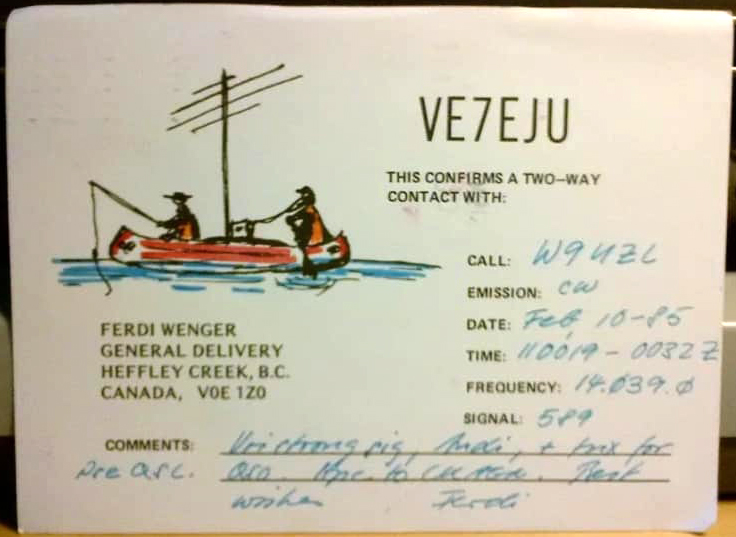 VE7EJU
THIS CONFIRMS A TWO-WAY
CONTACT WITH:
CALL: W9UZL
EMISSION: CW
DATE: Feb 10-85
TIME: 0019 - 0032 Z
FREQUENCY: 14.039.0
SIGNAL: 589
FERDI WENGER
GENERAL DELIVERY
HEFFLEY CREEK, B.C.
CANADA, V0E 1Z0
COMMENTS: strong sig, + tnx for
pse QSL. QSO. Hpe to CU AGN. Best
wishes Ferdi